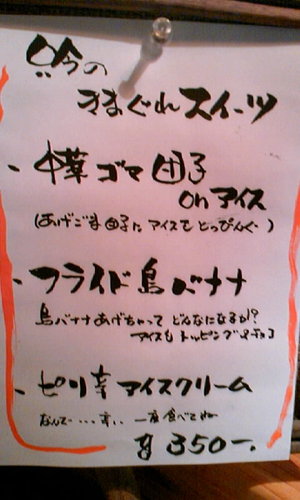 吟の
きまぐれスイーツ
- 中華ゴマ団子
onアイス
(あげごま団子にアイスをとっぴんぐ)
- フライド島バナナ
島バナナあげちゃって どんなになるか!?
アイスもトッピング
- ピリ辛アイスクリーム
なんで…辛い 一度食べてね
¥350-